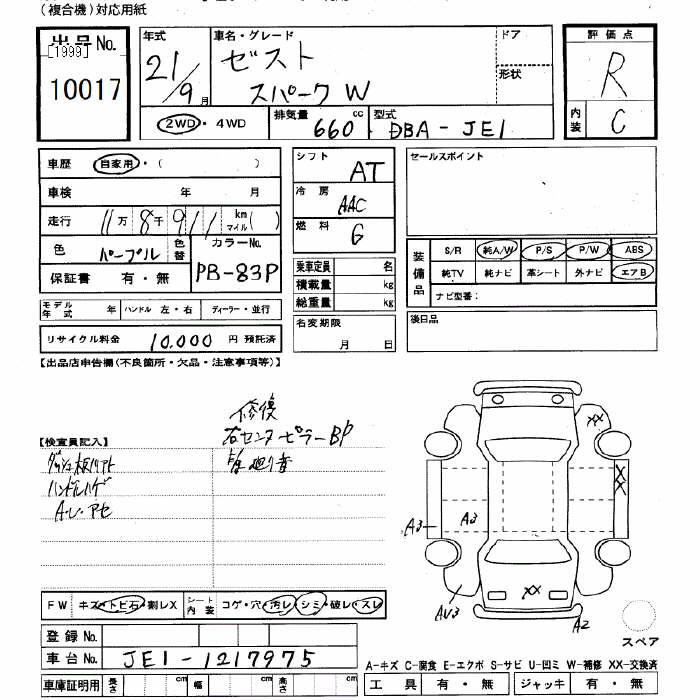 (複合機)対応用紙
出品No.
[1999]
10017
年式
21/9月
車名・グレード
ゼスト
スパーク W
ドア
形状
評価点
R
内装
C
2WD・4WD
排気量
660cc
型式
DBA-JE1
車歴 自家用・( )
車検 年 月
走行 11万8千911 km マイル( )
色 パープル
色替
カラーNo.
PB-83P
保証書 有・無
モデル年式 年 ハンドル 左・右 ディーラー・並行
リサイクル料金 10,000 円 預託済
シフト AT
冷房 AAC
燃料 G
乗車定員 名
積載量 kg
総重量 kg
名変期限
月 日
セールスポイント
装備品
S/R 純A/W P/S P/W ABS
純TV 純ナビ 革シート 外ナビ エアB
ナビ型番:
後日品
【出品店申告欄(不良箇所・欠品・注意事項等)】
修復
右センターピラーBP
【検査員記入】
ハンドルハゲ
A・L・アセ
XX
XX
A3
A3
XX
AU3
A2
スペア
FW キズ・トビ石・割レX
シート内装 コゲ・穴・汚レ・シミ・破レ・スレ
登録No.
車台No. JE1-1217975
車庫証明用 長さ cm 幅 cm 高さ cm
A-キズ C-腐食 E-エクボ S-サビ U-凹ミ W-補修 XX-交換済
工具 有・無 ジャッキ 有・無